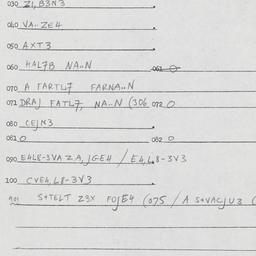 030 Z1, B3N3
040 VA.. ZE4
050 AXT3
060 HAL7B NA..N 061
070 A FARTL7 FARNA..N
071 DRAJ FATL7, NA..N (306 072 0
080 CEJN3
081 0 082 0
090 E4L8-3VA ZA, JGE4 / E4,L8-3V3
100 CVE4, L8-3V3
101 S+TELT Z9X FOJE4 (075 / A S+VACJU3 (